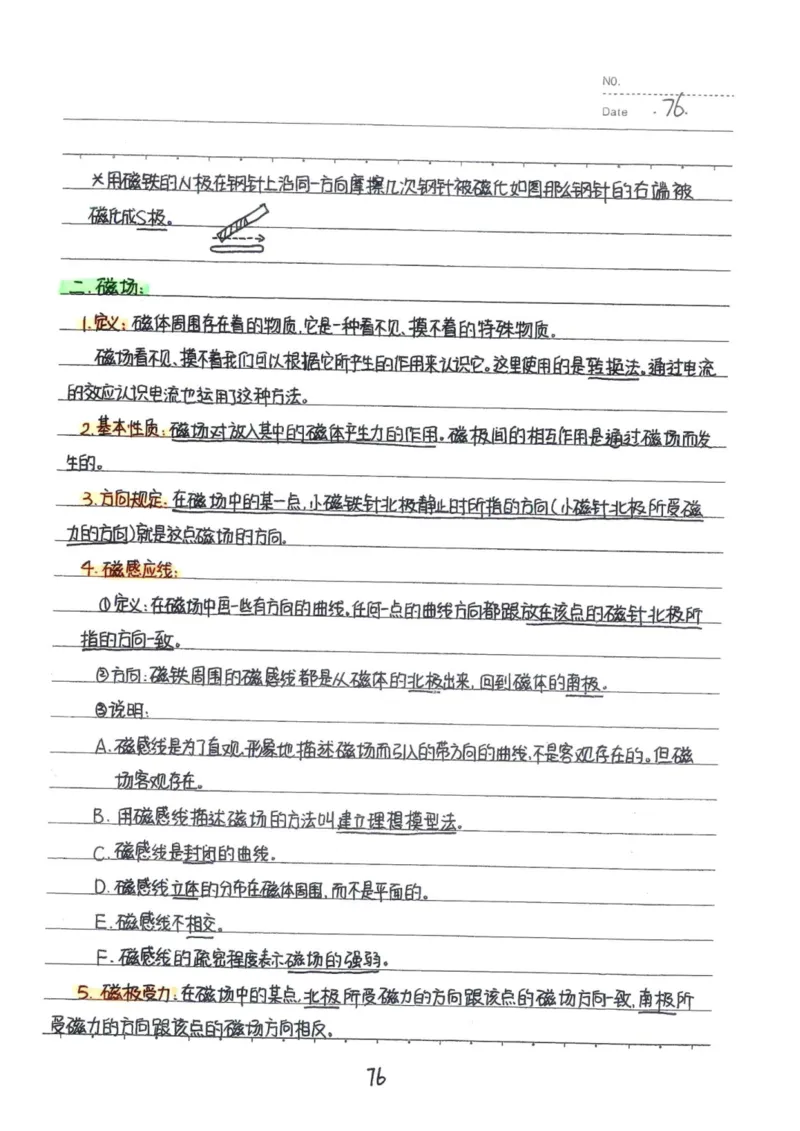 NO.
Date .76.
*用磁铁的N极在钢针上沿同一方向摩擦几次钢针被磁化如图那么钢针的右端被
磁化成S极。
二.磁场:
1.定义:磁体周围存在着的物质,它是一种看不见、摸不着的特殊物质。
磁场看不见、摸不着我们可以根据它所产生的作用来认识它。这里使用的是转换法。通过电流
的效应认识电流也运用了这种方法。
2.基本性质:磁场对放入其中的磁体产生力的作用。磁极间的相互作用是通过磁场而发
生的。
3.方向规定.在磁场中的某一点,小磁铁针北极静止时所指的方向(小磁针北极所受磁
力的方向)就是这点磁场的方向。
4.磁感应线:
①定义:在磁场中画一些有方向的曲线。任何一点的曲线方向都跟放在该点的磁针北极所
指的方向一致。
②方向:磁铁周围的磁感线都是从磁体的北极出来,回到磁体的南极。
③说明:
A.磁感线是为了直观、形象地描述磁场而引入的带方向的曲线,不是客观存在的。但磁
场客观存在。
B.用磁感线描述磁场的方法叫建立理想模型法。
C.磁感线是封闭的曲线。
D.磁感线立体的分布在磁体周围,而不是平面的。
E.磁感线不相交。
F.磁感线的疏密程度表示磁场的强弱。
5.磁极受力:在磁场中的某点,北极所受磁力的方向跟该点的磁场方向一致,南极所
受磁力的方向跟该点的磁场方向相反。
76